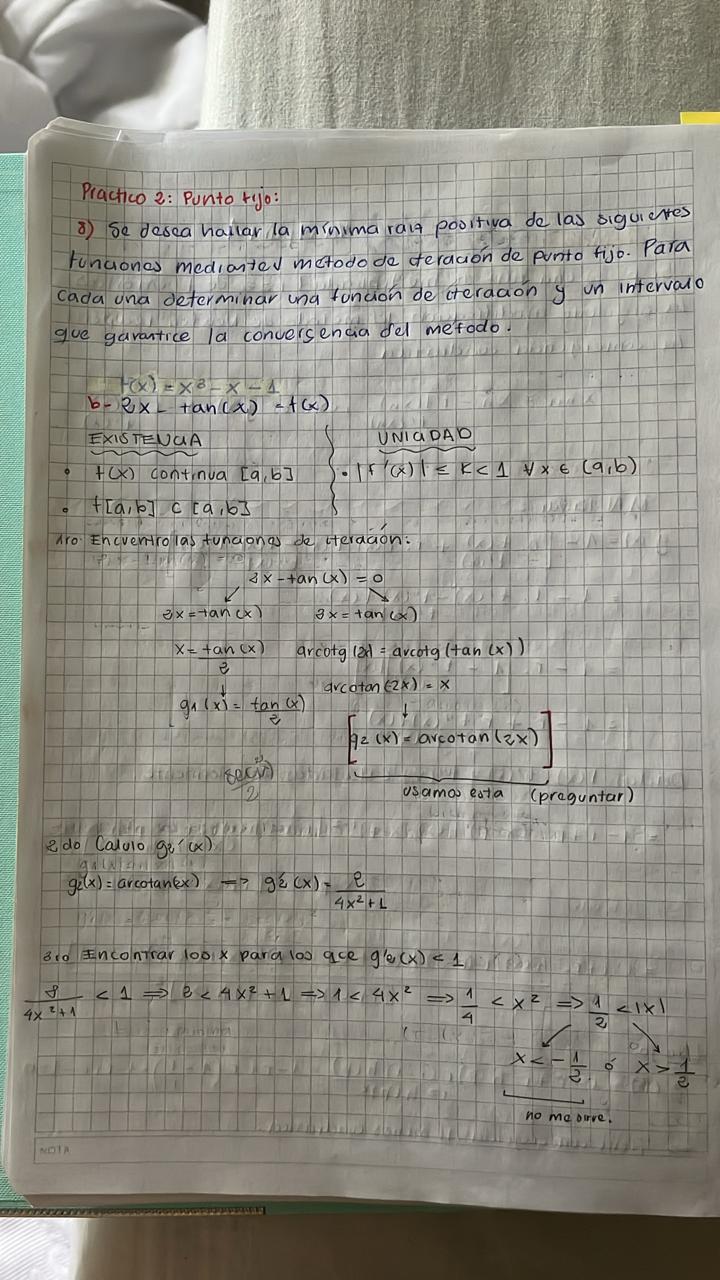 Practico 2: Punto fijo:
8) Se desea hallar la mínima raiz positiva de las siguientes
funciones mediante el método de iteración de punto fijo. Para
cada una determinar una función de iteración y un intervalo
que garantice la convergencia del método.
f(x) = x³ - x - 1
b- 2x - tan(x) = f(x)
EXISTENCIA
UNICIDAD
• f(x) continua [a,b]
• |f'(x)| ≤ K < 1 ∀ x ∈ (a,b)
• f[a,b] ⊂ [a,b]
1ro Encuentro las funciones de iteración:
2x - tan(x) = 0
2x = tan(x)    2x = tan(x)
x = tan(x)/2    arcotg(2x) = arcotg(tan(x))
arcotan(2x) = x
g1(x) = tan(x)/2
[g2(x) = arcotan(2x)]
sec²(x)/2
usamos esta (preguntar)
2do Calulo g2'(x)
g2(x) = arcotan(2x) => g2'(x) = 2/(4x²+1)
3ro Encontrar los x para los que g'2(x) < 1
2/(4x²+1) < 1 => 2 < 4x²+1 => 1 < 4x² => 1/4 < x² => 1/2 < |x|
x < -1/2 ó x > 1/2
no me sirve.
NOTA